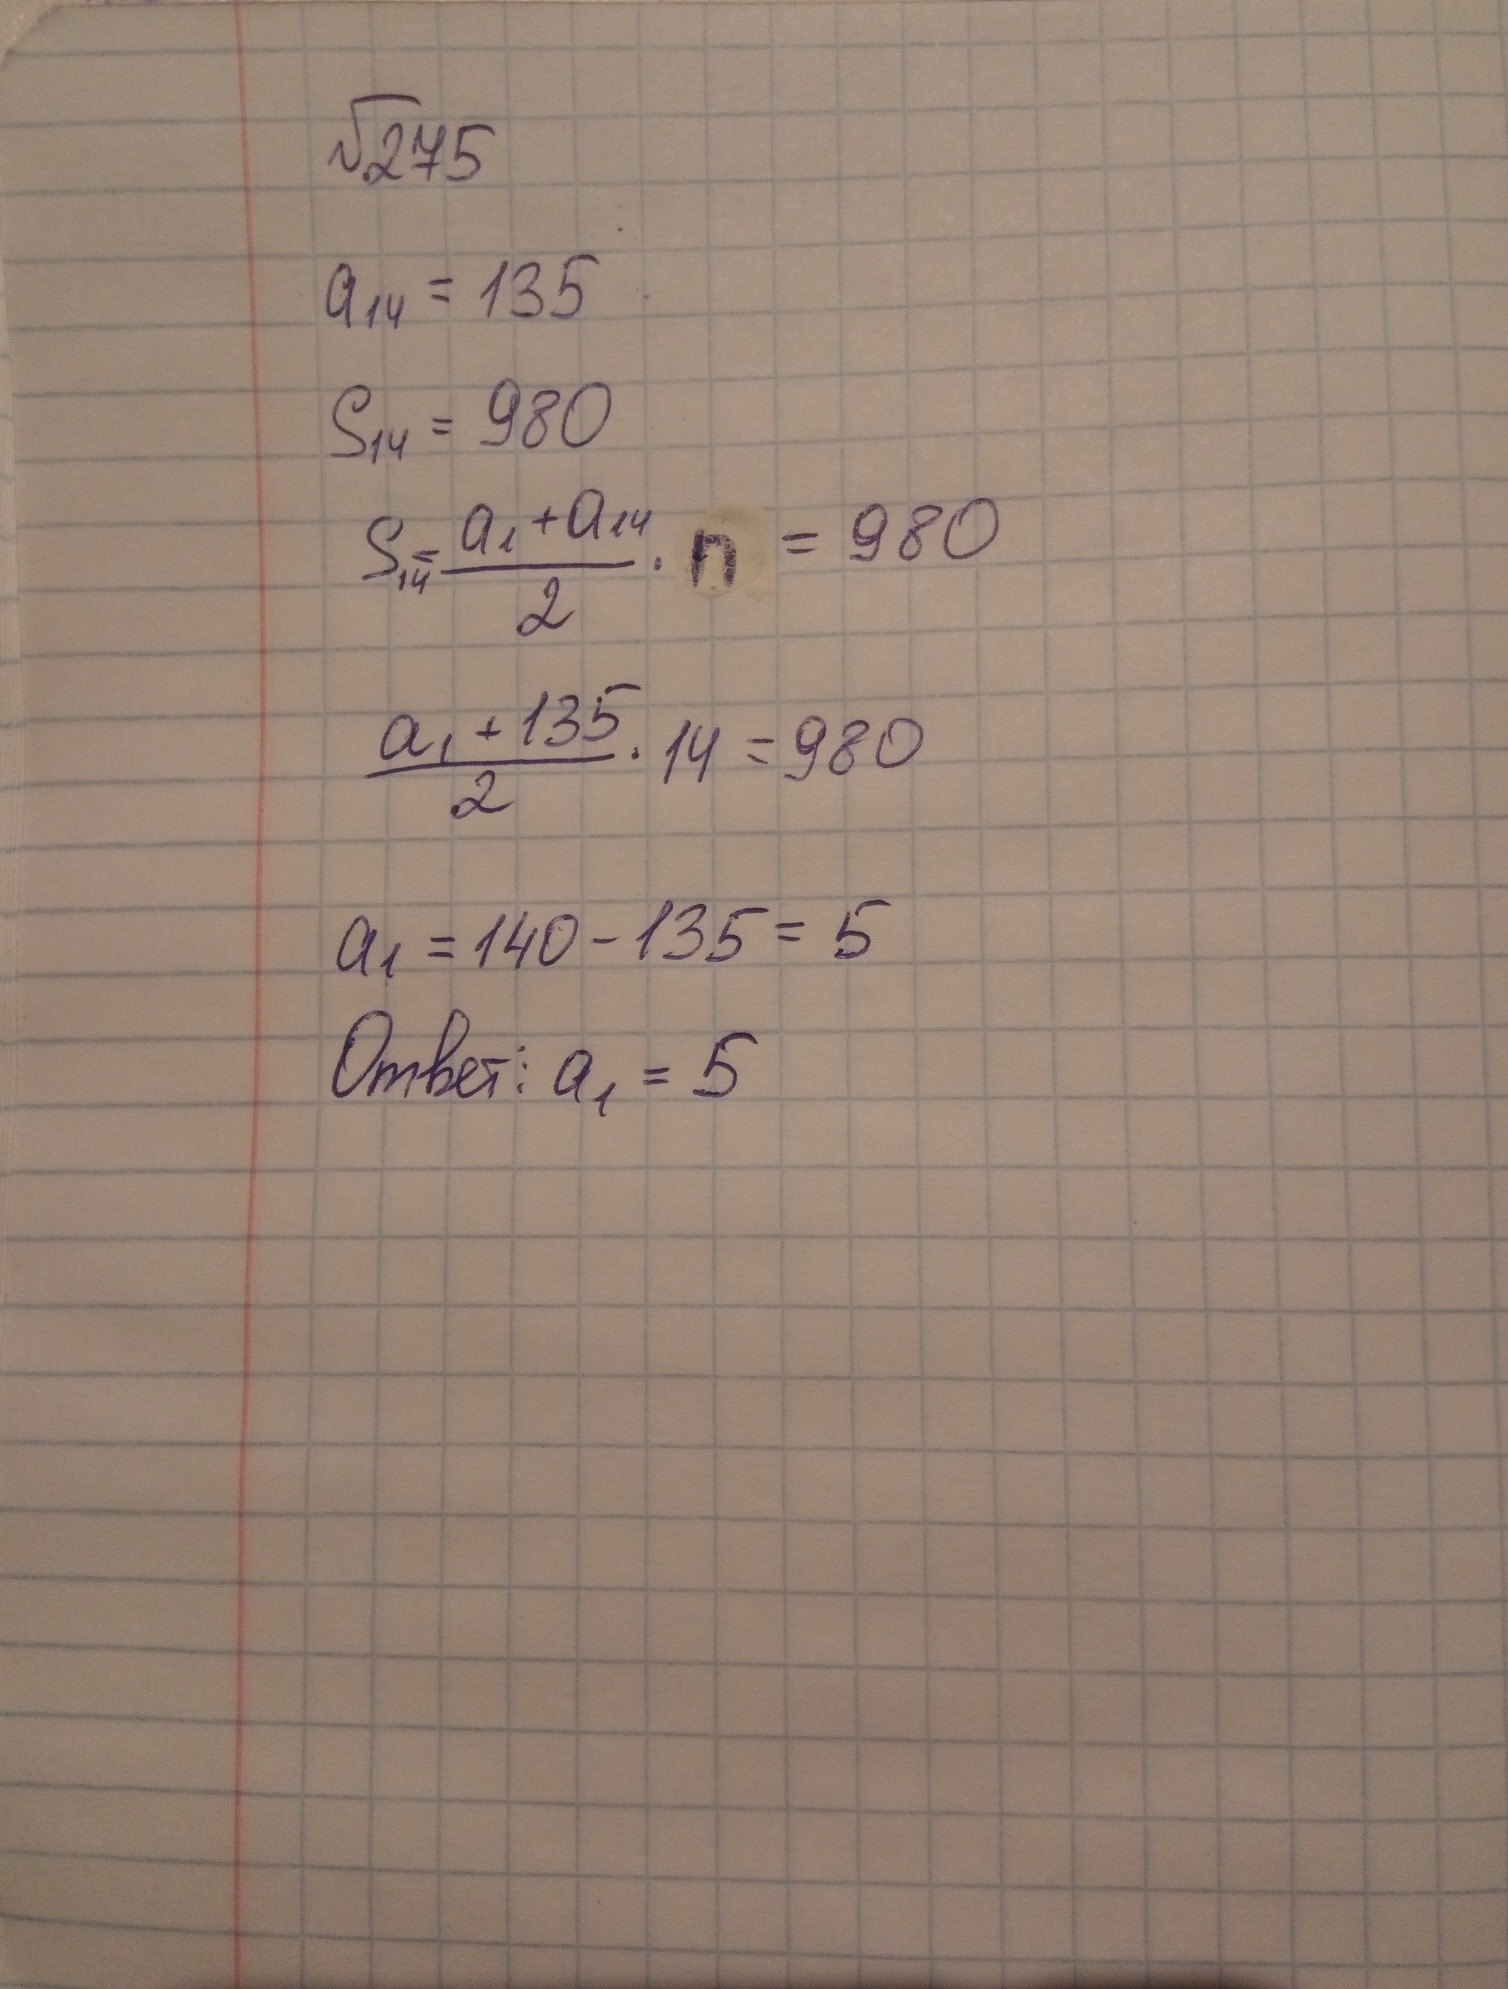 №275
a₁₄ = 135
S₁₄ = 980
S₁₄ = (a₁ + a₁₄)/2 · n = 980
(a₁ + 135)/2 · 14 = 980
a₁ = 140 - 135 = 5
Ответ: a₁ = 5